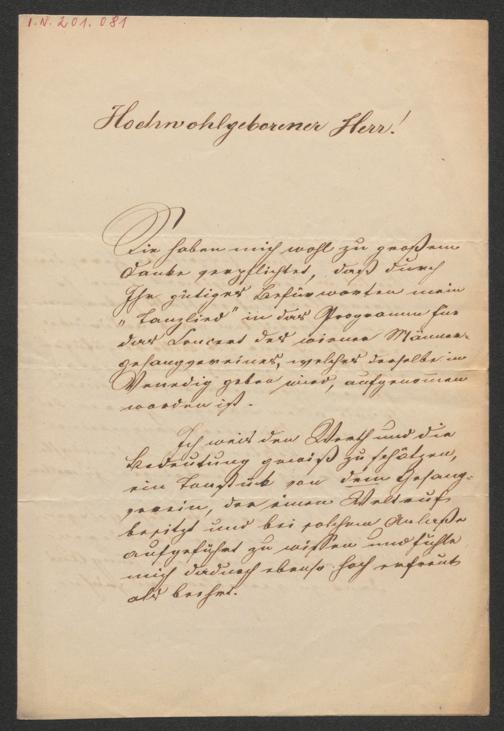 I.N. 201.081
Hochwohlgeborener Herr!
Sie haben mich wohl zu großem
Danke verpflichtet, daß durch
Ihr gütiges Befürworten mein
„Tanzlied" in das Programm für
das Concert des wiener Männer-
gesangvereines, welches derselbe in
Venedig geben wird, aufgenommen
worden ist.
Ich weis den Werth und die
Bedeutung gewiß zu schätzen,
ein Tonstück von dem Gesang-
verein, der einen Weltruf
besitzt und bei solchem Anlaße
aufgeführt zu wissen und fühle
mich dadurch ebenso hoch erfreut
als beehrt.